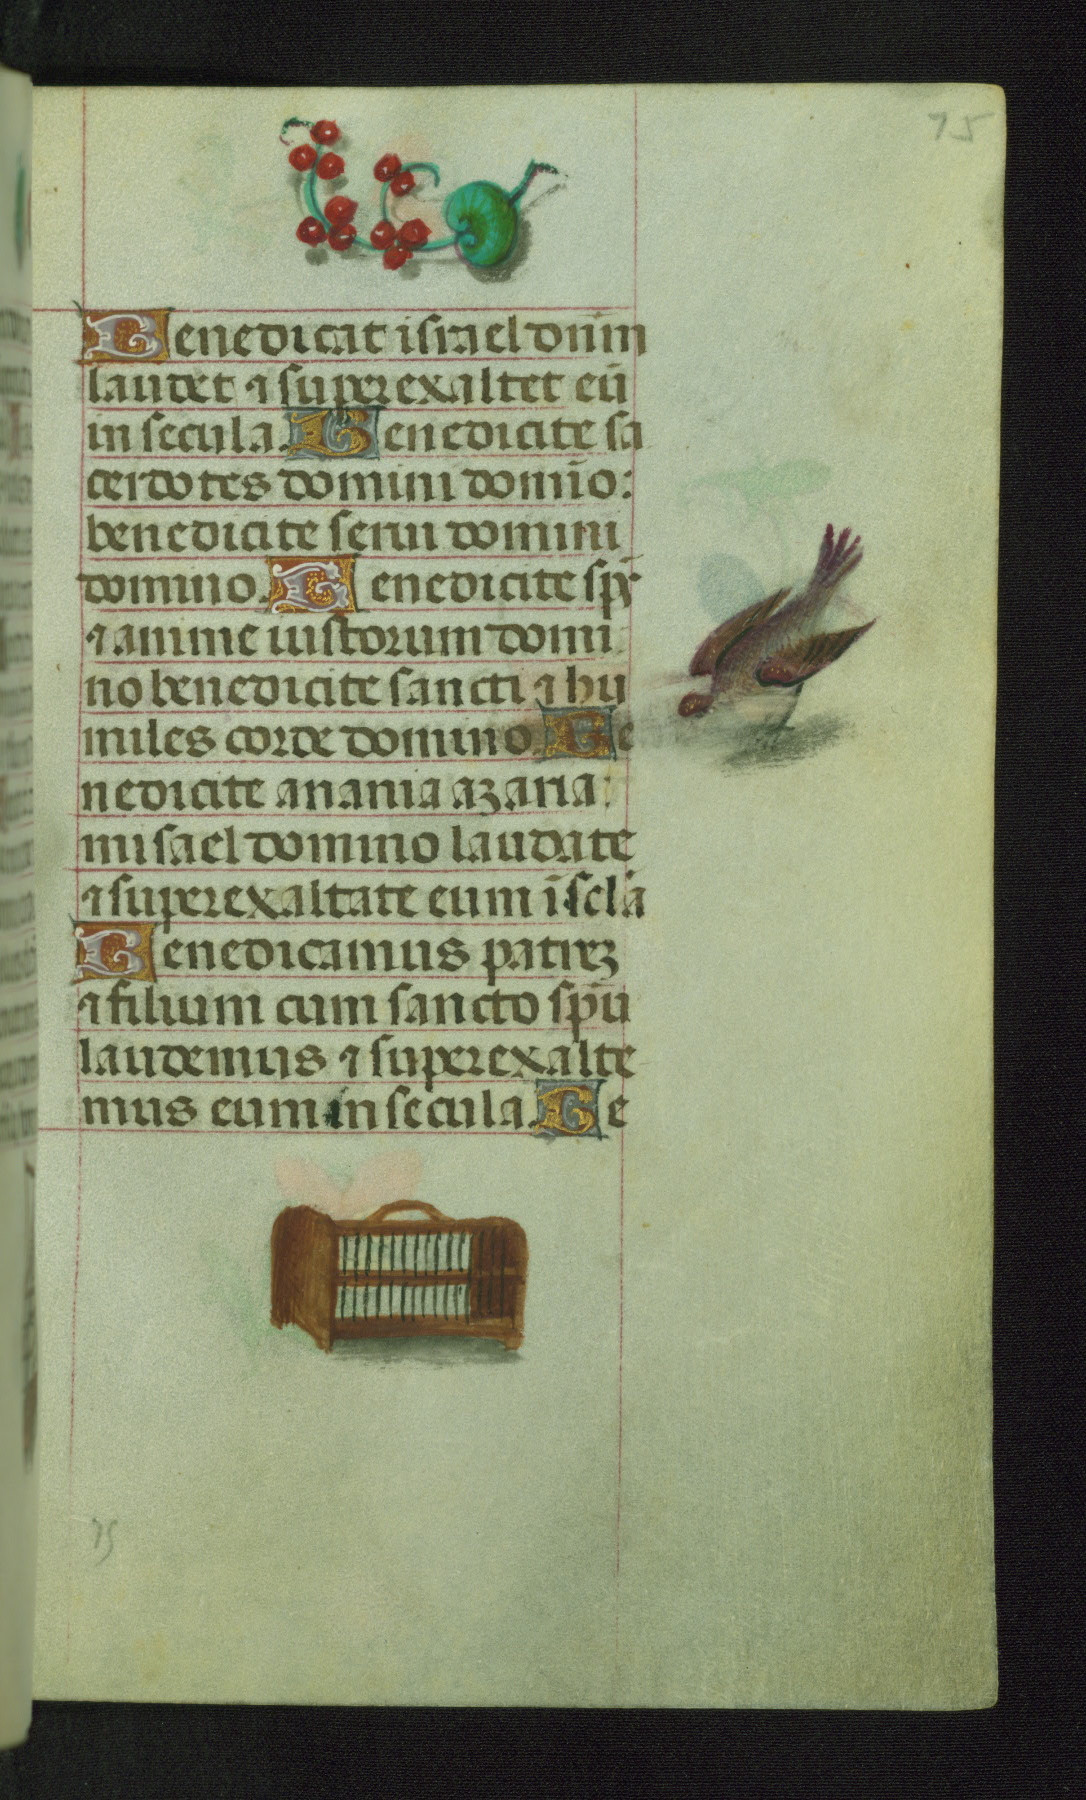 75
Benedicat israel dn̄m
laudet ⁊ superexaltet eū
in secula. Benedicite sa
cerdotes domini domīo:
benedicite serui domini
domino. Benedicite sp̄s
⁊ anime iustorum domi
no benedicite sancti ⁊ hu
miles corde domino. Be
nedicite anania azaria:
misael domino laudate
⁊ superexaltate eum ī scl̄a
Benedicamus patrez
⁊ filium cum sancto spū
laudemus ⁊ superexalte
mus eum in secula. Be
75